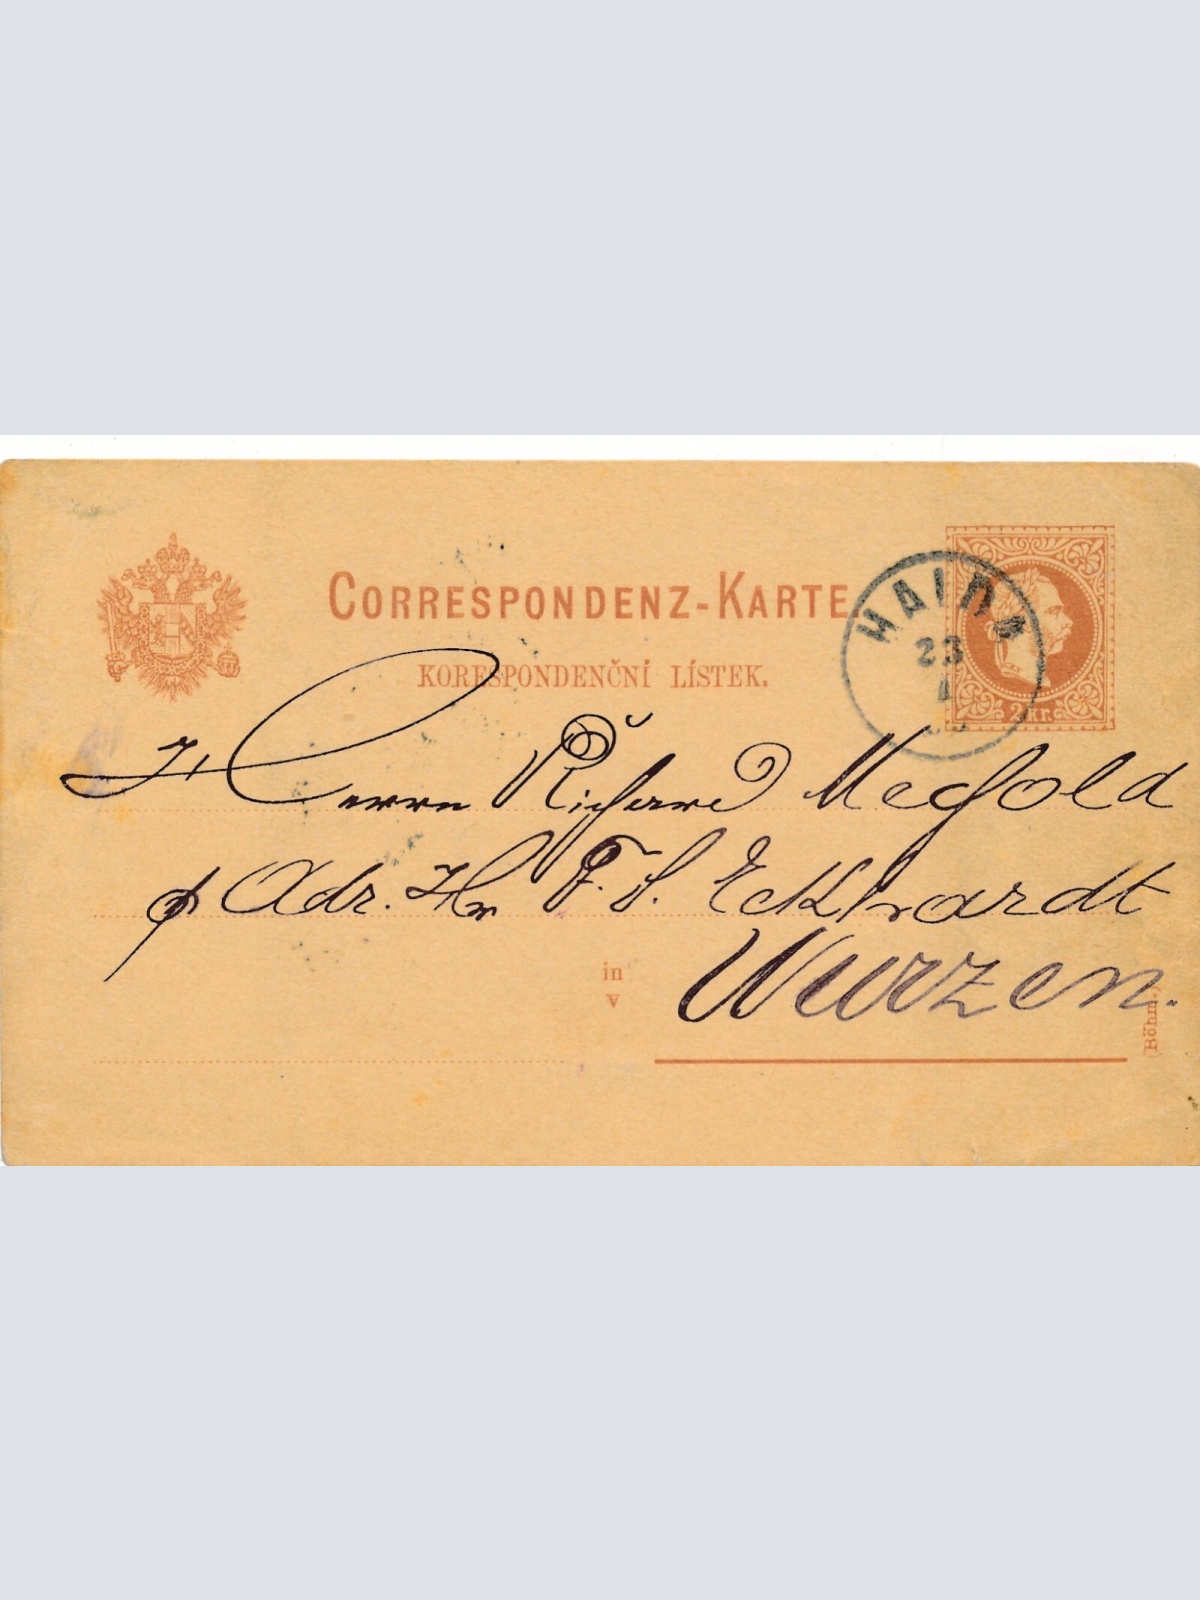 CORRESPONDENZ-KARTE.
KORESPONDENČNÍ LÍSTEK.
HAIDA
23
2 Kr.
Herrn Richard
p Adr. Hr F. S. Eckhardt
in
v
Wurzen.
(Böhm.)